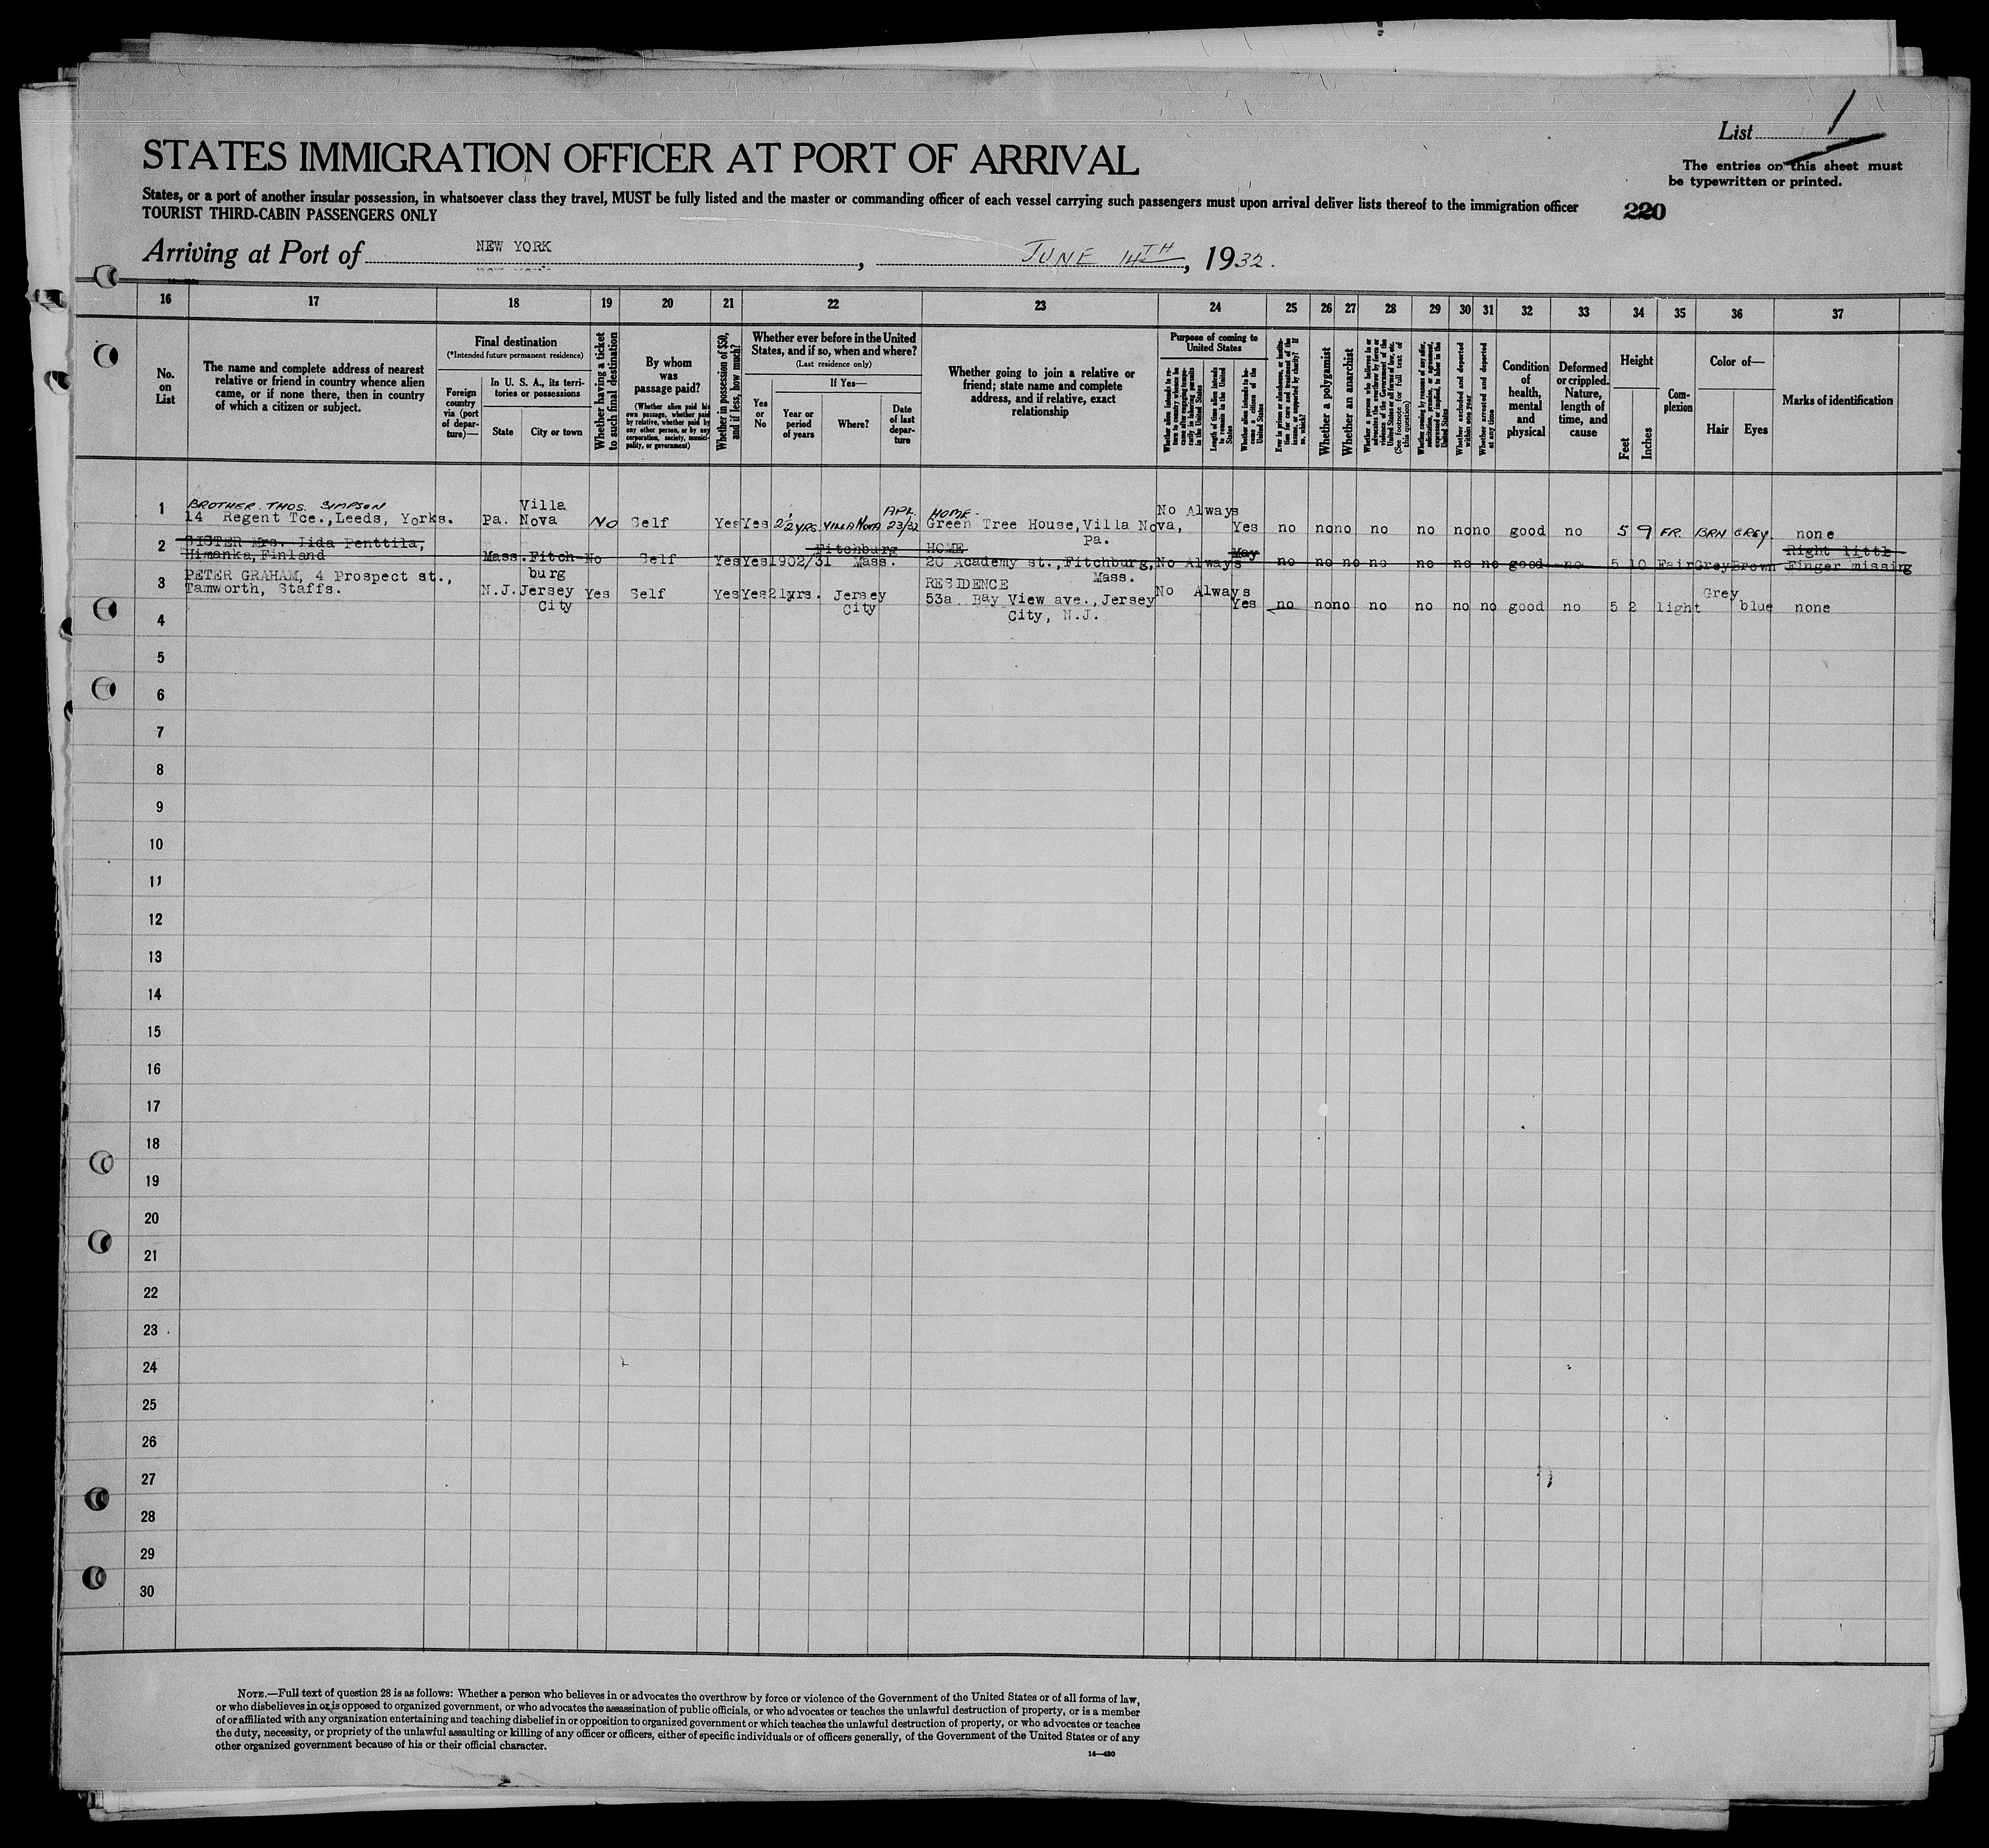 List 1
The entries on this sheet must
be typewritten or printed.
STATES IMMIGRATION OFFICER AT PORT OF ARRIVAL
States, or a port of another insular possession, in whatsoever class they travel, MUST be fully listed and the master or commanding officer of each vessel carrying such passengers must upon arrival deliver lists thereof to the immigration officer
TOURIST THIRD-CABIN PASSENGERS ONLY
220
Arriving at Port of NEW YORK, JUNE 14TH, 1932.
16 17 18 19 20 21 22 23 24 25 26 27 28 29 30 31 32 33 34 35 36 37
No.
on
List
The name and complete address of nearest
relative or friend in country whence alien
came, or if none there, then in country
of which a citizen or subject.
Final destination
(*Intended future permanent residence)
Foreign
country
via (port
of depar-
ture)—
In U. S. A., its terri-
tories or possessions
State
City or town
Whether having a ticket
to such final destination
By whom
was
passage paid?
(Whether alien paid his
own passage, whether paid
by relative, whether paid by
any other person, or by any
corporation, society, munici-
pality, or government)
Whether in possession of $50,
and if less, how much?
Whether ever before in the United
States, and if so, when and where?
(Last residence only)
Yes
or
No
If Yes—
Year or
period
of years
Where?
Date
of last
depar-
ture
Whether going to join a relative or
friend; state name and complete
address, and if relative, exact
relationship
Purpose of coming to
United States
Length of time alien intends
to remain in the United
States
Whether alien intends to be-
come a citizen of the
United States
Whether a polygamist
Whether an anarchist
(See footnote for full text of
this question)
Whether arrested and deported
at any time
Condition
of
health,
mental
and
physical
Deformed
or crippled.
Nature,
length of
time, and
cause
Height
Feet
Inches
Com-
plexion
Color of—
Hair
Eyes
Marks of identification
1 BROTHER. THOS. SIMPSON Villa APL. HOME- No Always
14 Regent Tce.,Leeds, Yorks. Pa. Nova NO Self Yes Yes 2½ YRS. VILLA NOVA 23/32 Green Tree House,Villa Nova, Yes no no no no no no no good no 5 9 FR. BRN GREY. none
Pa.
2 SISTER Mrs. Iida Penttila, Fitchburg HOME May Right littl
Himanka,Finland Mass. Fitch- No Self Yes Yes 1902/31 Mass. 20 Academy st.,Fitchburg, No Always no no no no no no no good no 5 10 Fair Grey Brown Finger missing
burg Mass.
3 PETER GRAHAM, 4 Prospect st., RESIDENCE
Tamworth, Staffs. N.J. Jersey Yes Self Yes Yes 21yrs. Jersey 53a Bay View ave., Jersey No Always Grey
City City City, N.J. Yes no no no no no no no good no 5 2 light blue none
4
5
6
7
8
9
10
11
12
13
14
15
16
17
18
19
20
21
22
23
24
25
26
27
28
29
30
NOTE.—Full text of question 28 is as follows: Whether a person who believes in or advocates the overthrow by force or violence of the Government of the United States or of all forms of law,
or who disbelieves in or is opposed to organized government, or who advocates the assassination of public officials, or who advocates or teaches the unlawful destruction of property, or is a member
of or affiliated with any organization entertaining and teaching disbelief in or opposition to organized government or which teaches the unlawful destruction of property, or who advocates or teaches
the duty, necessity, or propriety of the unlawful assaulting or killing of any officer or officers, either of specific individuals or of officers generally, of the Government of the United States or of any
other organized government because of his or their official character.
14—430